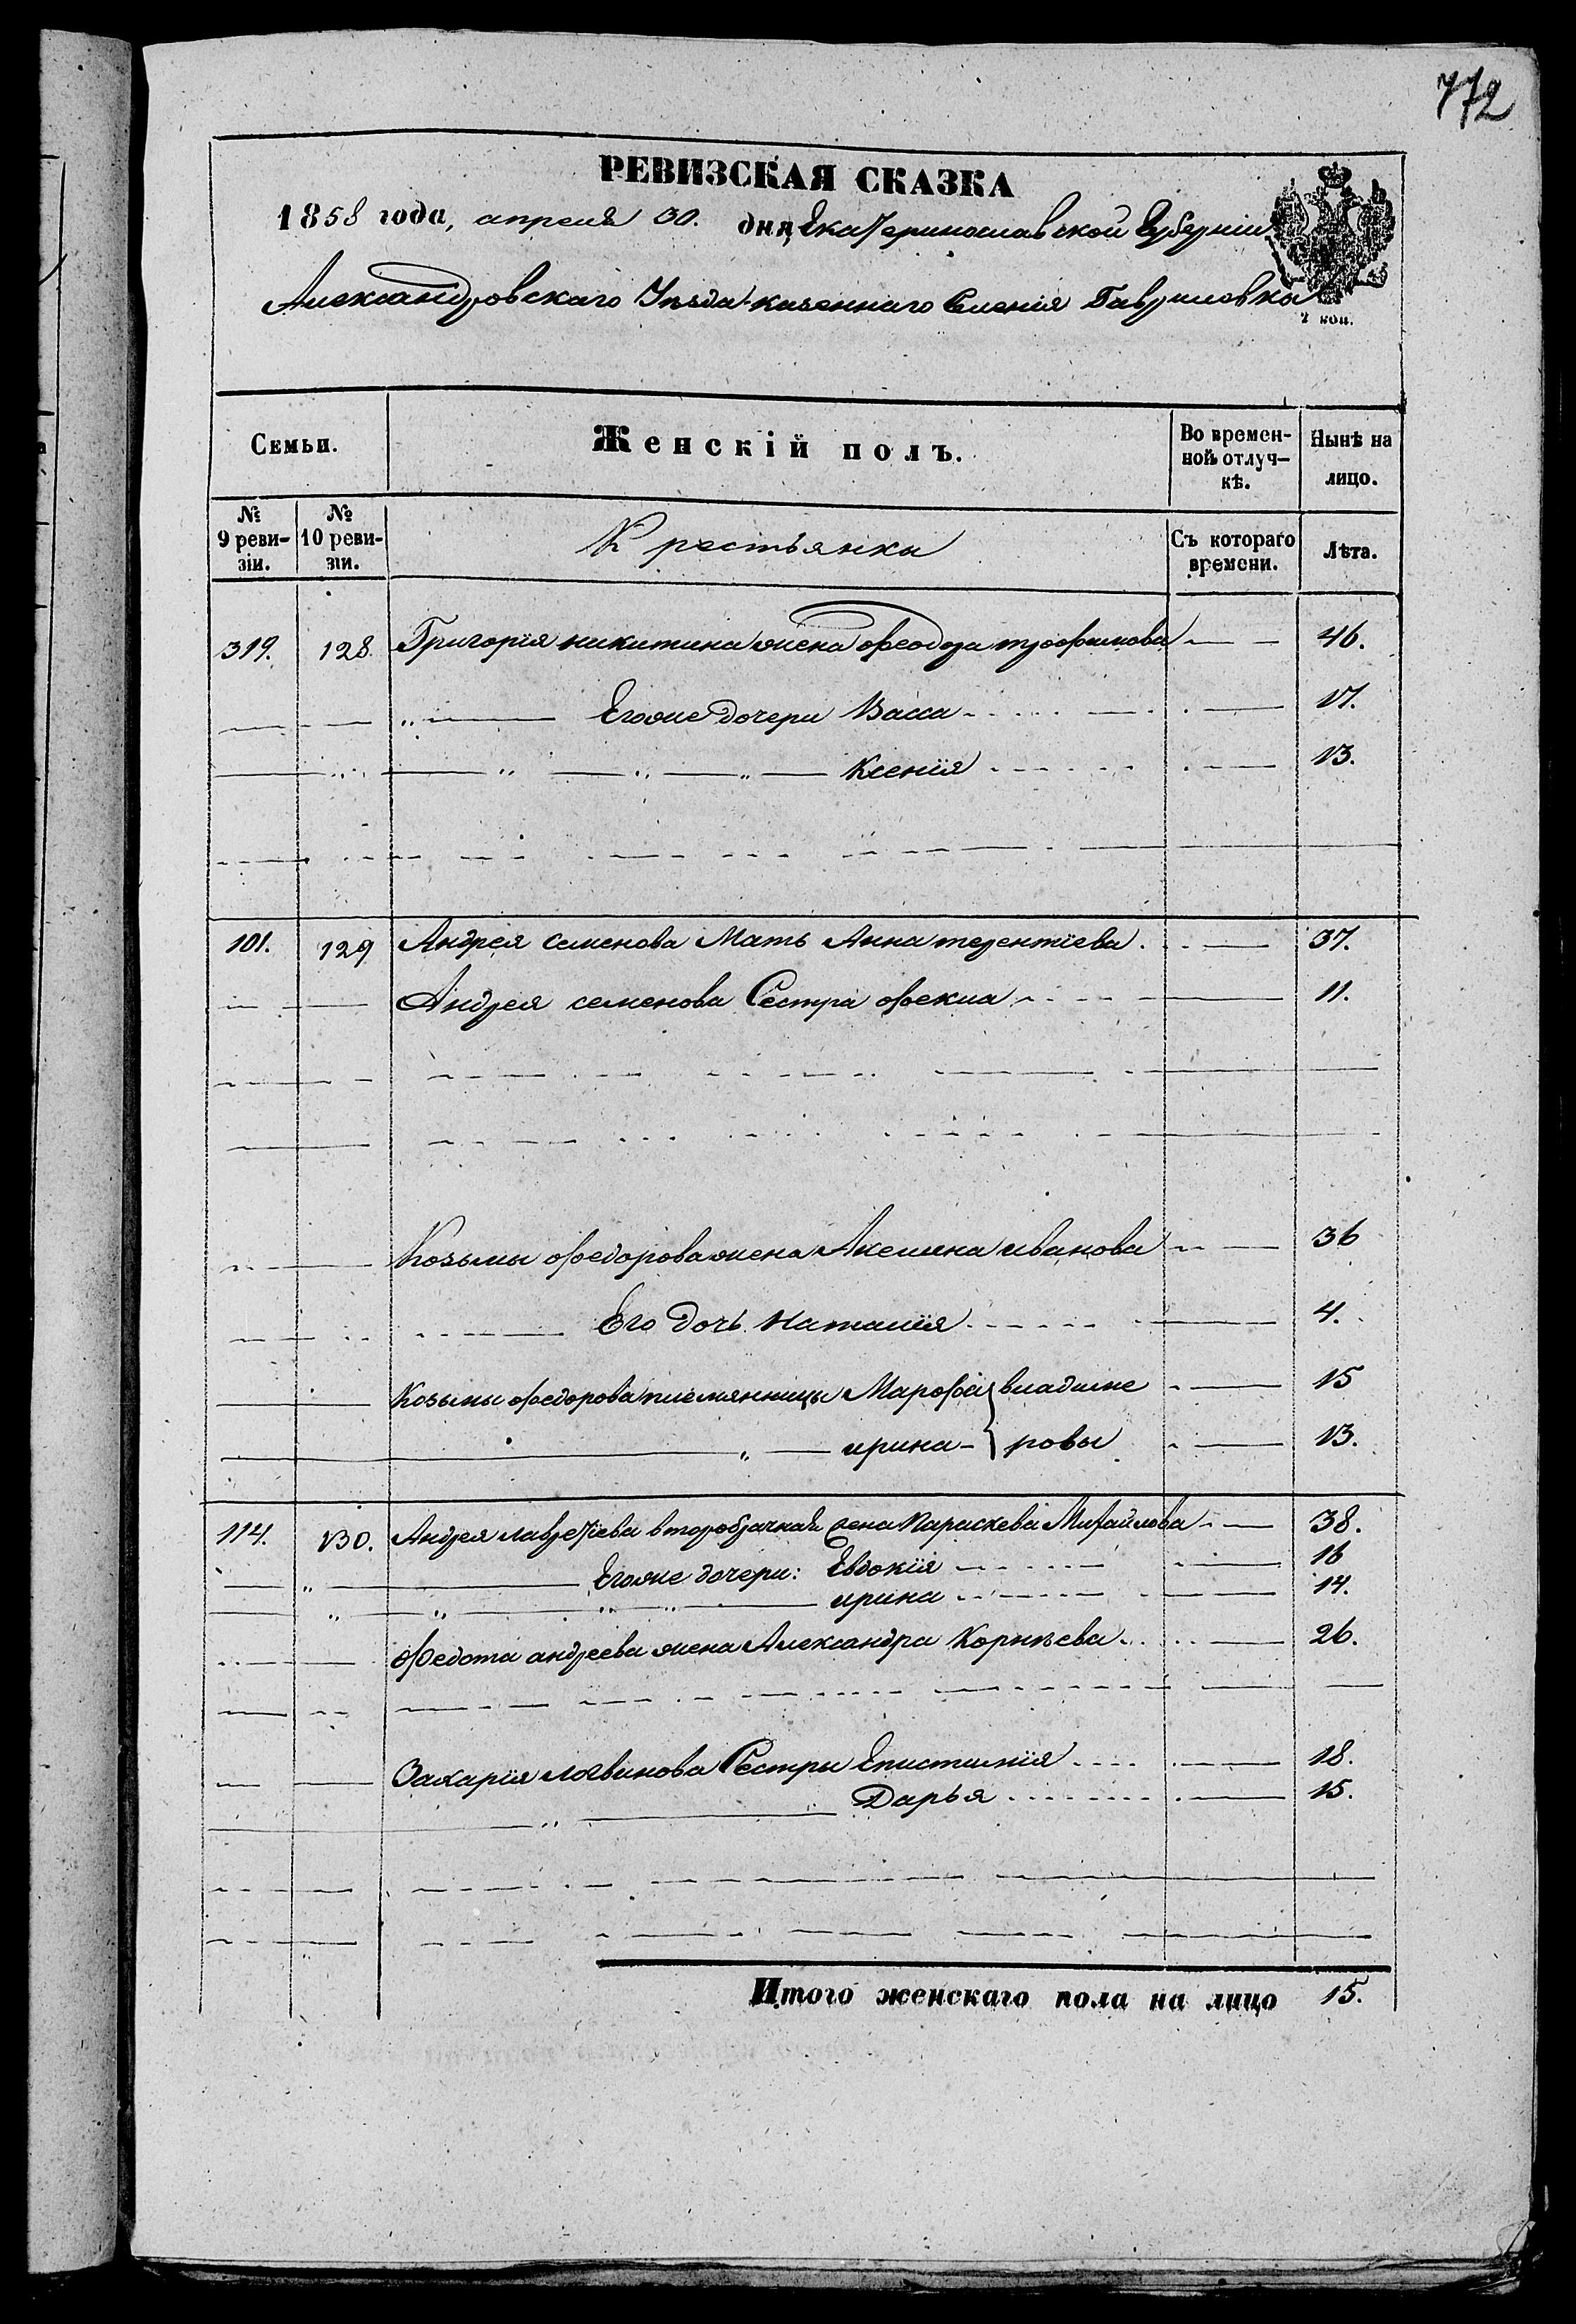 772
РЕВИЗСКАЯ СКАЗКА
1858 года, апреля 30. дня, Екатеринославской Губерніи
Александровскаго Уѣзда казеннаго Селенія Гавриловка
2 коп.
Семьи. Женскій полъ. Во времен-ной отлуч-кѣ. Нынѣ на лицо.
№ 9 реви-зіи. № 10 реви-зіи. Крестьянка Съ котораго времени. Лѣта.
319. 128. Григорія никитина жена феодора трофимова 46.
Егоже дочери Васса 17.
Ксенія 13.
101. 129 Андрея семенова Мать Анна терентіева 37.
Андрея семенова Сестра фекла 11.
Козьмы федорова жена Акелина иванова 36
Его дочь Наталія 4.
Козьмы федорова племянницы Марфа владиме 15
ирина - ровы 13.
114. 130. Андрея лаврентіева второбрачная жена Параскева Михайлова 38.
Егоже дочери: Евдокія 16
ирина 14.
Федота андреева жена Александра Корнѣева 26.
Захарія логвинова Сестры Епистимія 18.
Дарья 15.
Итого женскаго пола на лицо 15.